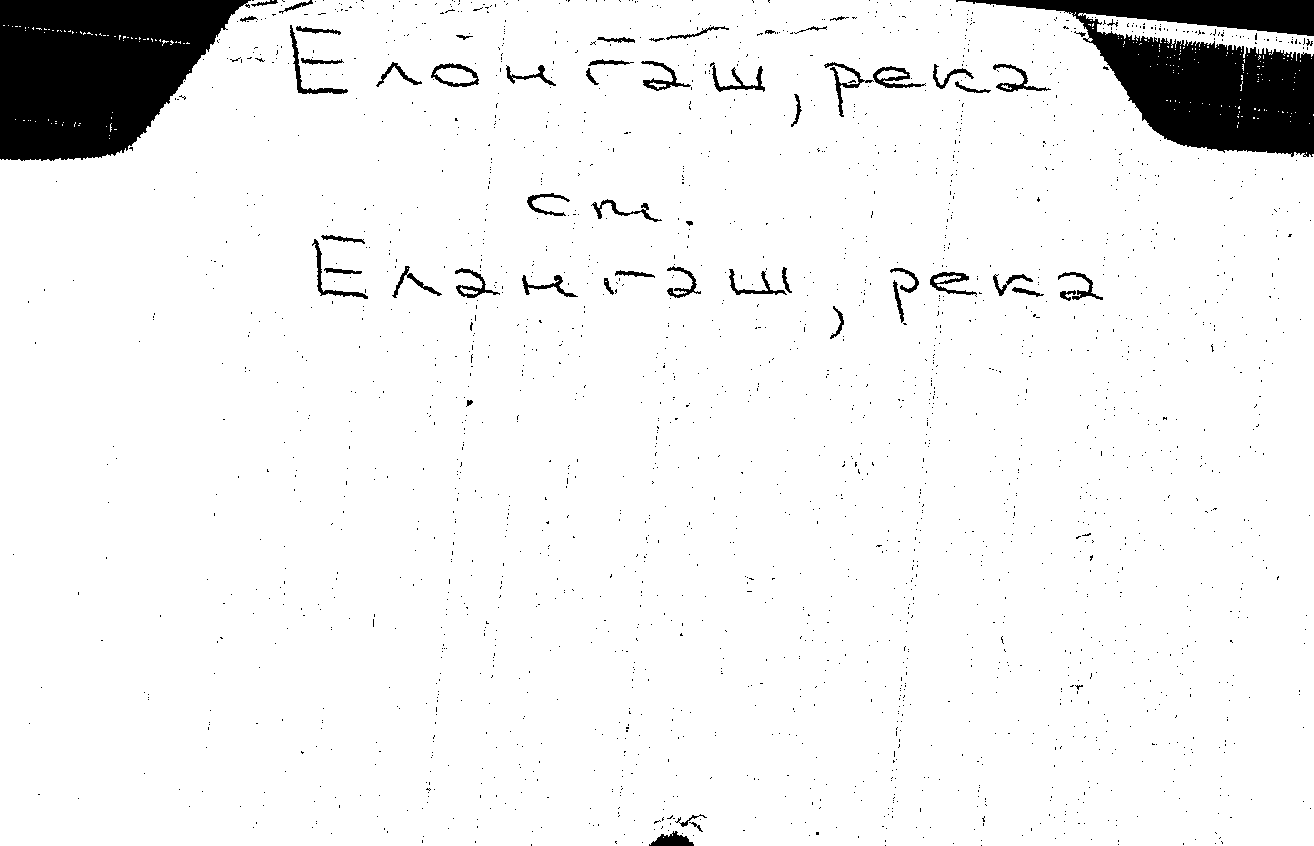 Елонгаш, река
см.
Елангаш, река